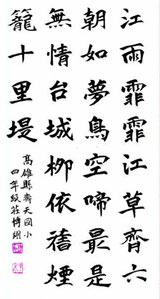 江雨霏霏江草齊六
朝如夢鳥空啼最是
無情台城柳依舊煙
籠十里堤
高雄縣壽天國小
四年級莊